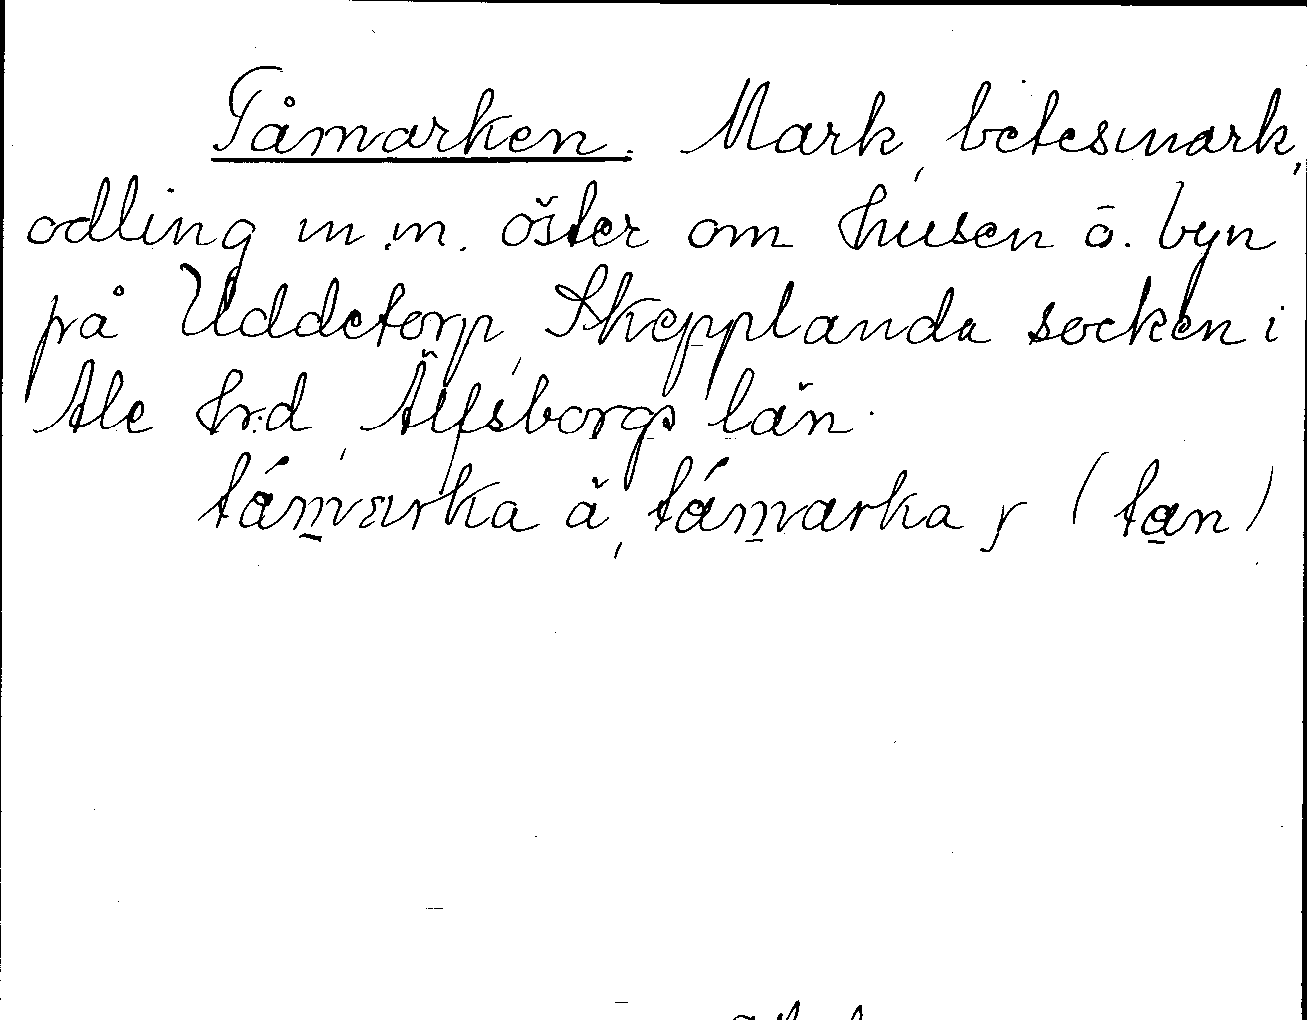 Tåmarken. Mark, betesmark,
odling m.m. öster om husen ö. byn
på Uddetorp, Skepplanda socken i
Ale hrd, Älfsborgs län.
támarka ä, támarka y (tan)